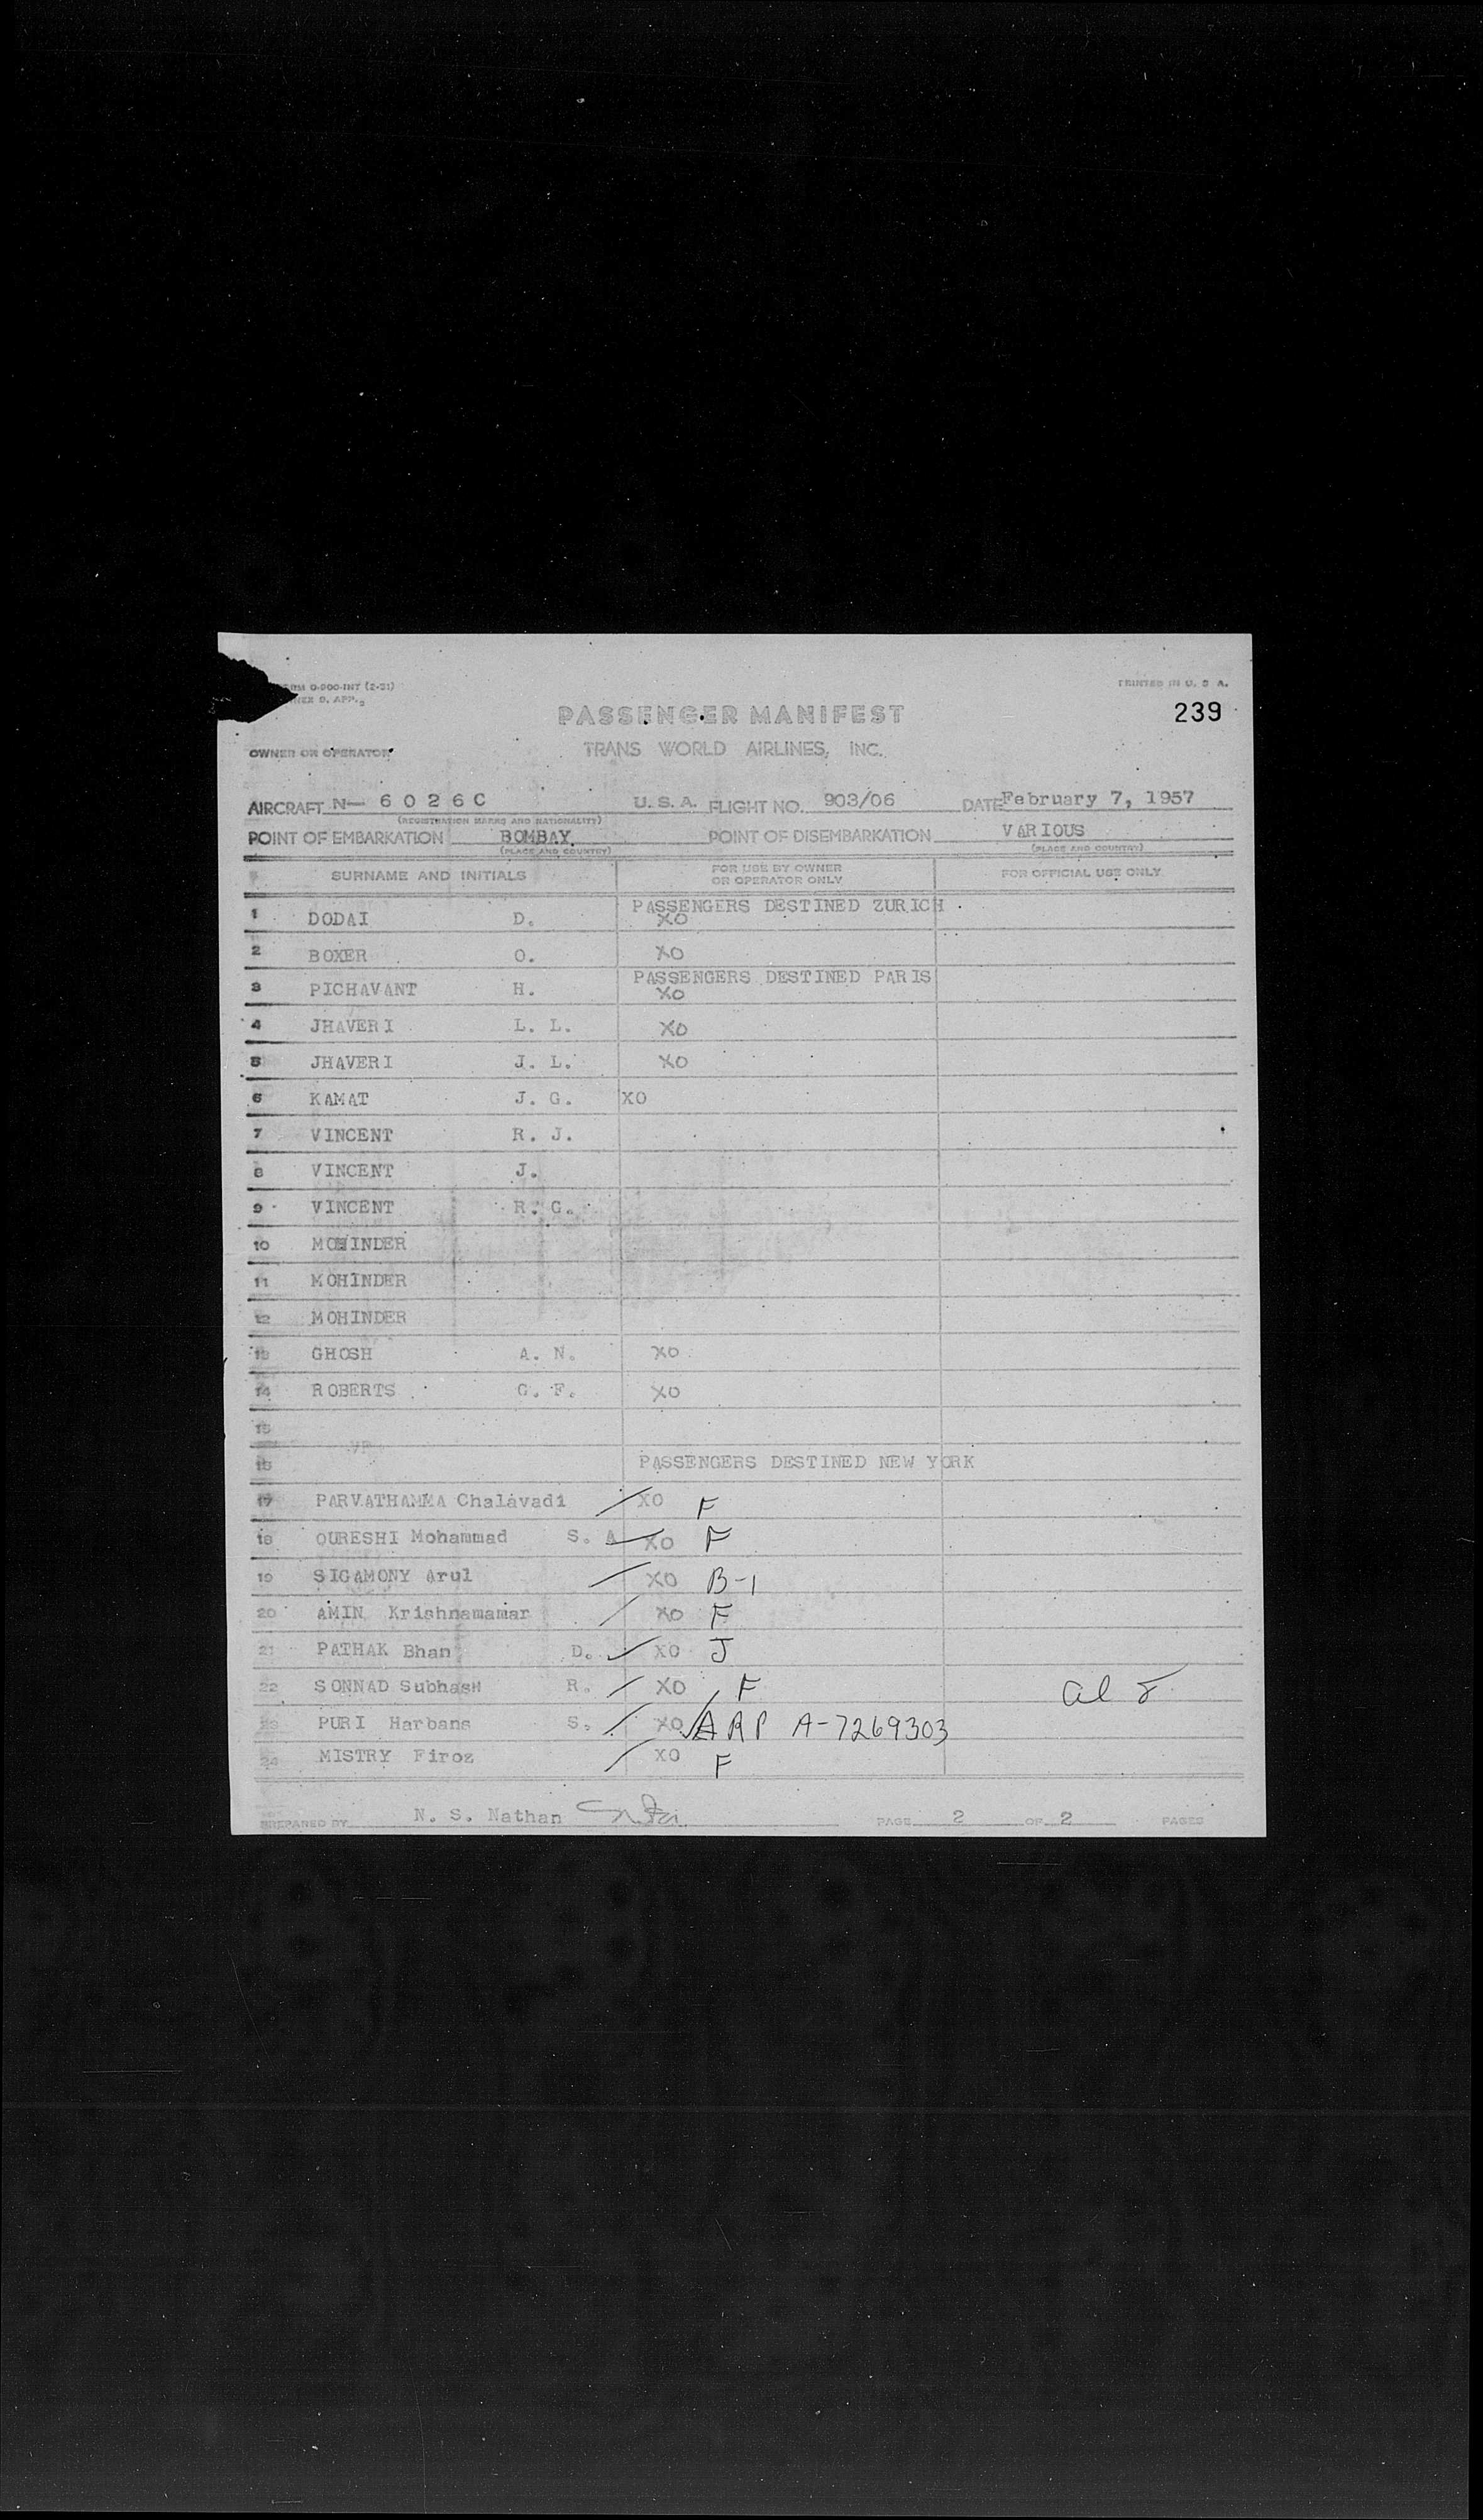 FORM O-900-INT (2-51)
PRINTED IN U. S. A.
D. APP.
PASSENGER MANIFEST
239
OWNER OR OPERATOR
TRANS WORLD AIRLINES, INC.
AIRCRAFT N- 6 0 2 6 C U. S. A. FLIGHT NO. 903/06 DATE February 7, 1957
(REGISTRATION MARKS AND NATIONALITY)
POINT OF EMBARKATION BOMBAY. POINT OF DISEMBARKATION VARIOUS
(PLACE AND COUNTRY) (PLACE AND COUNTRY)
SURNAME AND INITIALS FOR USE BY OWNER OR OPERATOR ONLY FOR OFFICIAL USE ONLY
PASSENGERS DESTINED ZURICH
1 DODAI D. XO
2 BOXER O. XO
PASSENGERS DESTINED PARIS
3 PICHAVANT H. XO
4 JHAVERI L. L. XO
5 JHAVERI J. L. XO
6 KAMAT J. G. XO
7 VINCENT R. J.
8 VINCENT J.
9 VINCENT R. G.
10 MOHINDER
11 MOHINDER
12 MOHINDER
13 GHOSH A. N. XO
14 ROBERTS G. F. XO
15
16 PASSENGERS DESTINED NEW YORK
17 PARVATHAMMA Chalavadi XO F
18 QURESHI Mohammad S. A XO F
19 SIGAMONY Arul XO B-1
20 AMIN Krishnamamar XO F
21 PATHAK Bhan D. XO J
22 SONNAD SubhasH R. XO F
23 PURI Harbans S. XO ARP A-7269303
24 MISTRY Firoz XO F
PREPARED BY N. S. Nathan PAGE 2 OF 2 PAGES